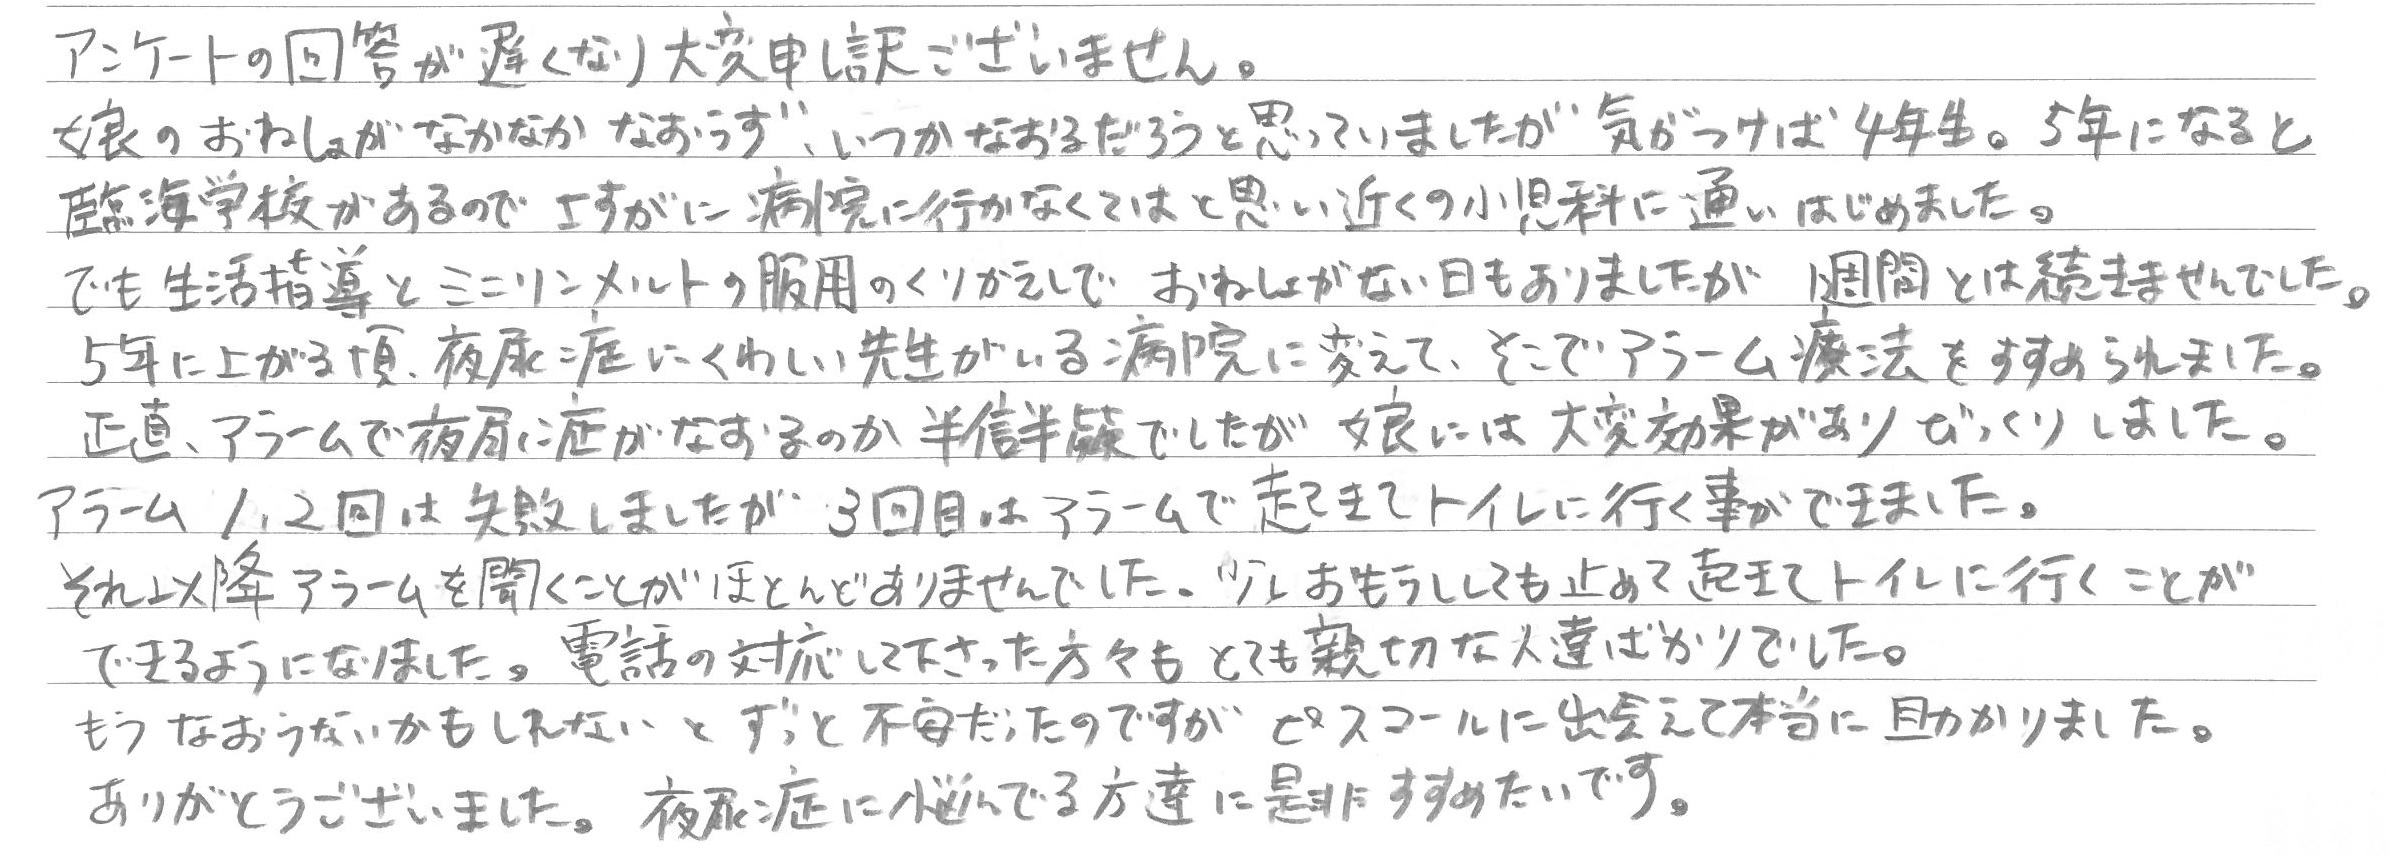 アンケートの回答が遅くなり大変申し訳ございません。
娘のおねしょがなかなかなおらず、いつかなおるだろうと思っていましたが気がつけば4年生。5年になると
臨海学校があるのでさすがに病院に行かなくてはと思い近くの小児科に通いはじめました。
でも生活指導とミニリンメルトの服用のくりかえしでおねしょがない日もありましたが1週間とは続きませんでした。
5年に上がる頃、夜尿症にくわしい先生がいる病院に変えて、そこでアラーム療法をすすめられました。
正直、アラームで夜尿症がなおるのか半信半疑でしたが娘には大変効果がありびっくりしました。
アラーム1,2回は失敗しましたが3回目はアラームで起きてトイレに行く事ができました。
それ以降アラームを聞くことがほとんどありませんでした。少しおもらししても止めて起きてトイレに行くことが
できるようになりました。電話の対応して下さった方々もとても親切な人達ばかりでした。
もうなおらないかもしれないとずっと不安だったのですがピスコールに出会えて本当に助かりました。
ありがとうございました。夜尿症に悩んでる方達に是非すすめたいです。